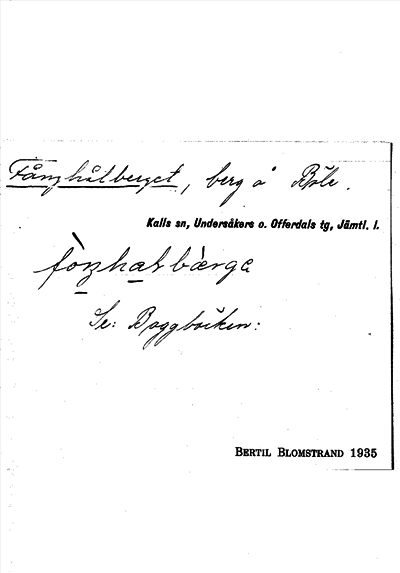 Fånghålberget, berg å Böle.
Kalls sn, Undersåkers o. Offerdals tg, Jämtl. l.
Se: Baggböcken:
BERTIL BLOMSTRAND 1935